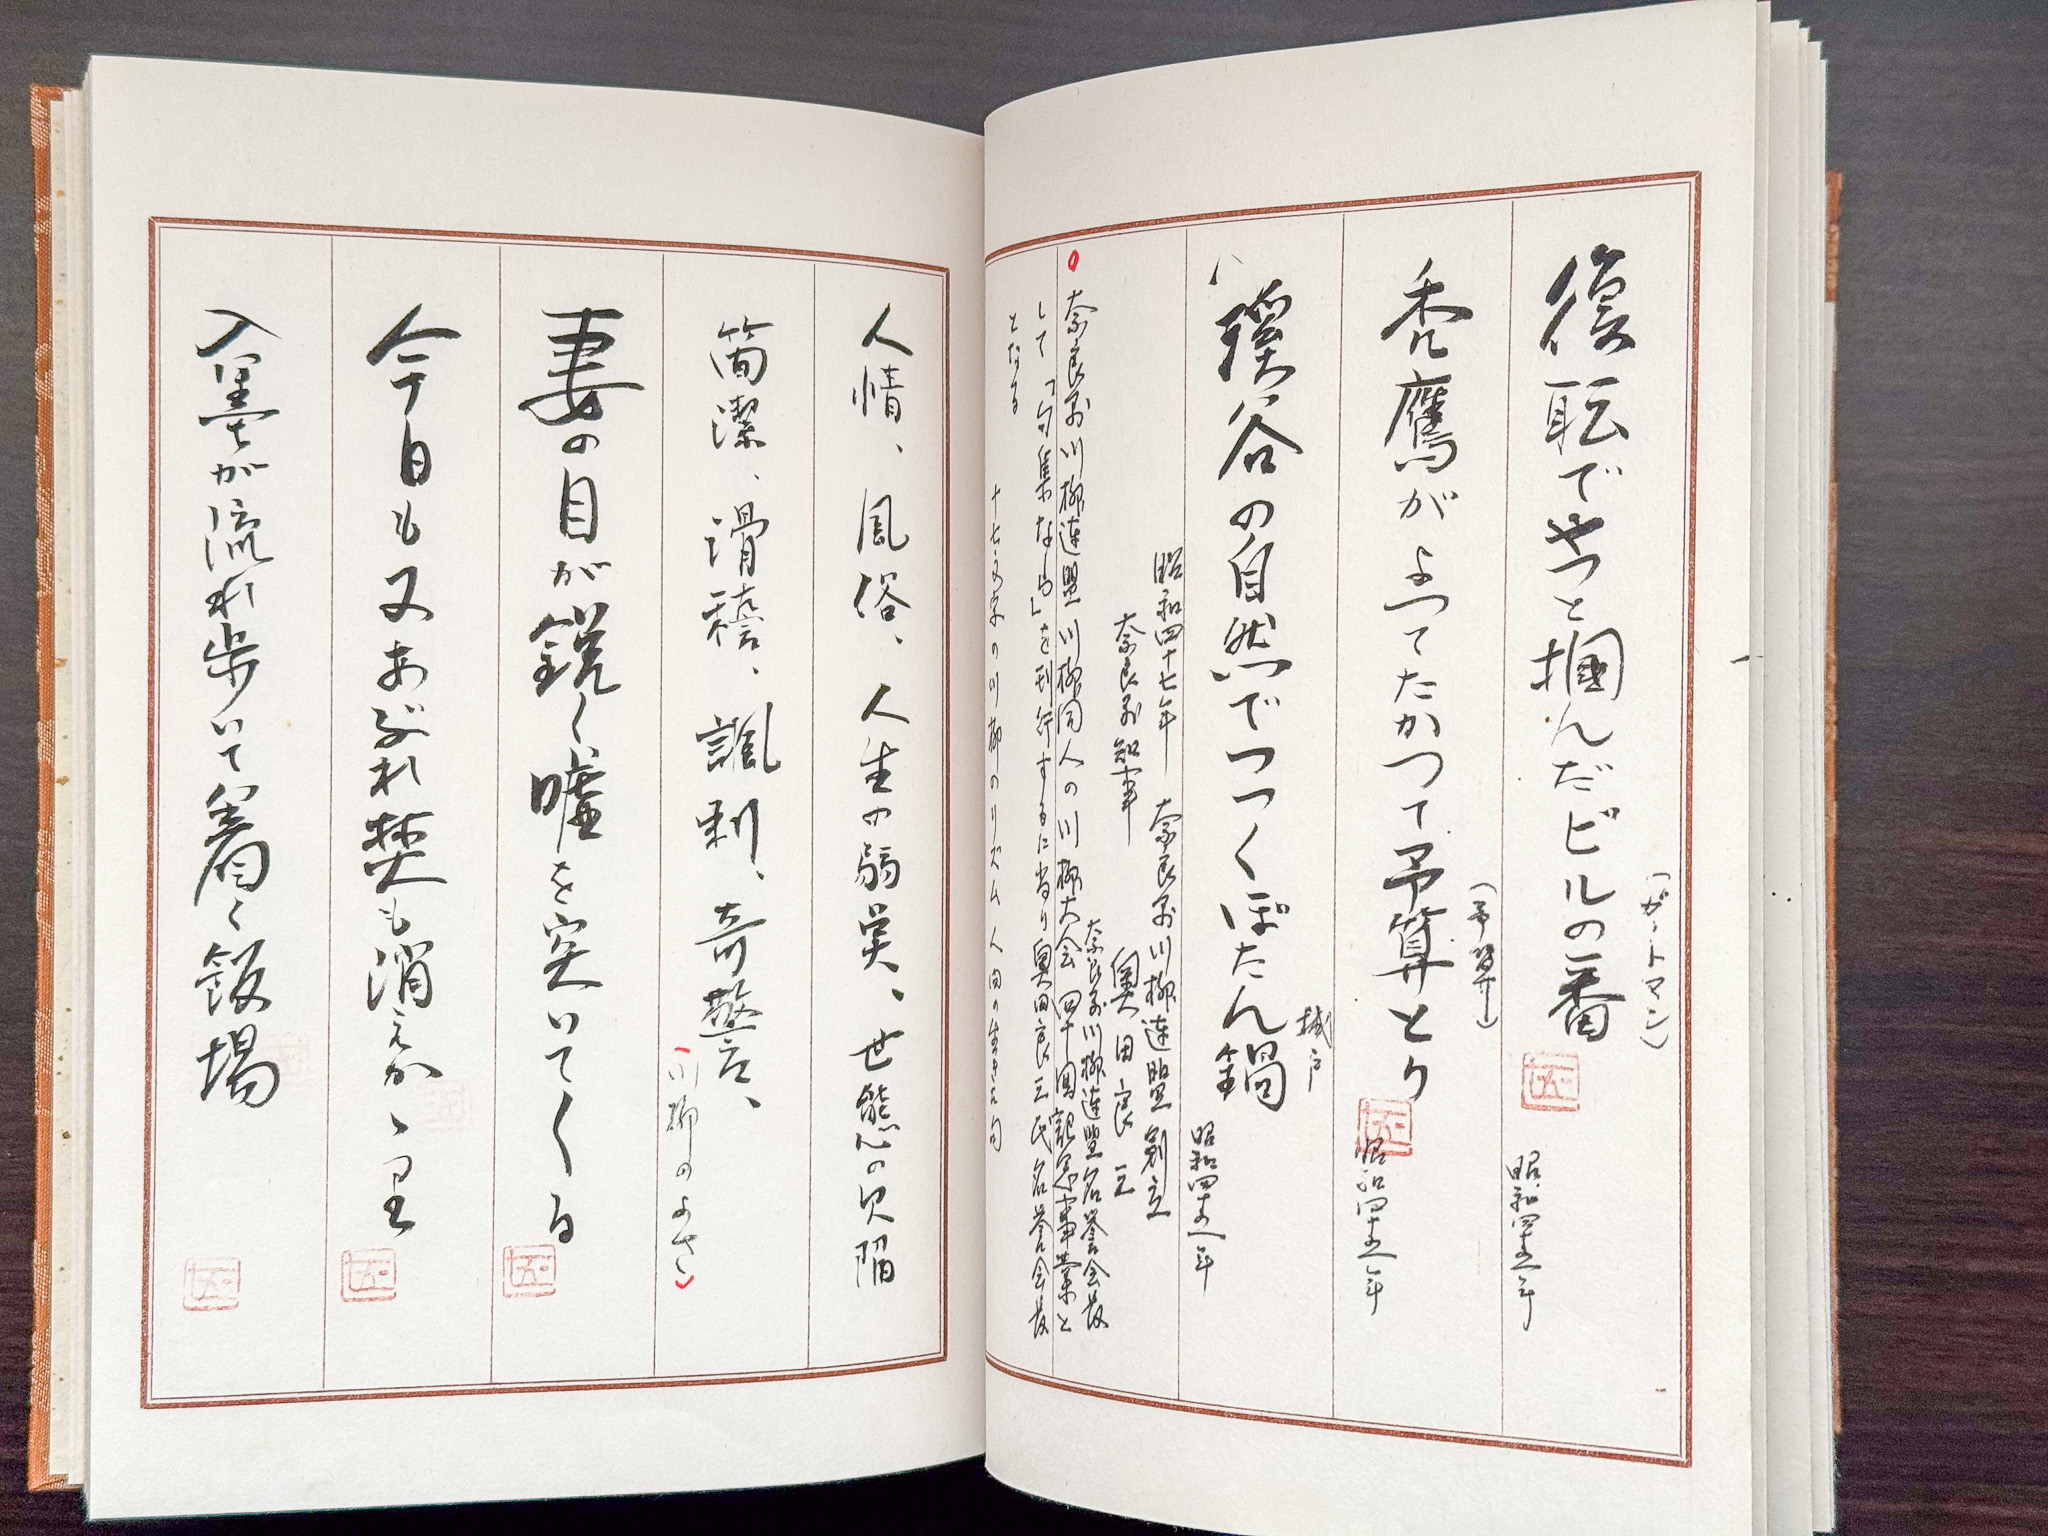 復転でやつと掴んだビルの番
(ガートマン)
昭和四十五年
禿鷹がよつてたかつて予算とり
(予算)
昭和四十五年
渓谷の自然でつつくぼたん鍋
城戸
昭和四十五年
昭和四十七年 奈良県川柳連盟創立
奈良県知事 奥田良三
奈良県川柳連盟名誉会長
奈良県川柳連盟 川柳同人の川柳大会 四十回記念事業と
して「句集なら」を刊行するに当り奥田良三氏名誉会長
となる
十七文字の川柳のリズム 人間の生きた句
人情、風俗、人生の弱点、世態の欠陥
簡潔、滑稽、諷刺、奇警、
(川柳のよさ)
妻の目が鋭く嘘を突いてくる
今日も又あぶれ焚火も消えかゝり
入墨が流れ歩いて着く飯場